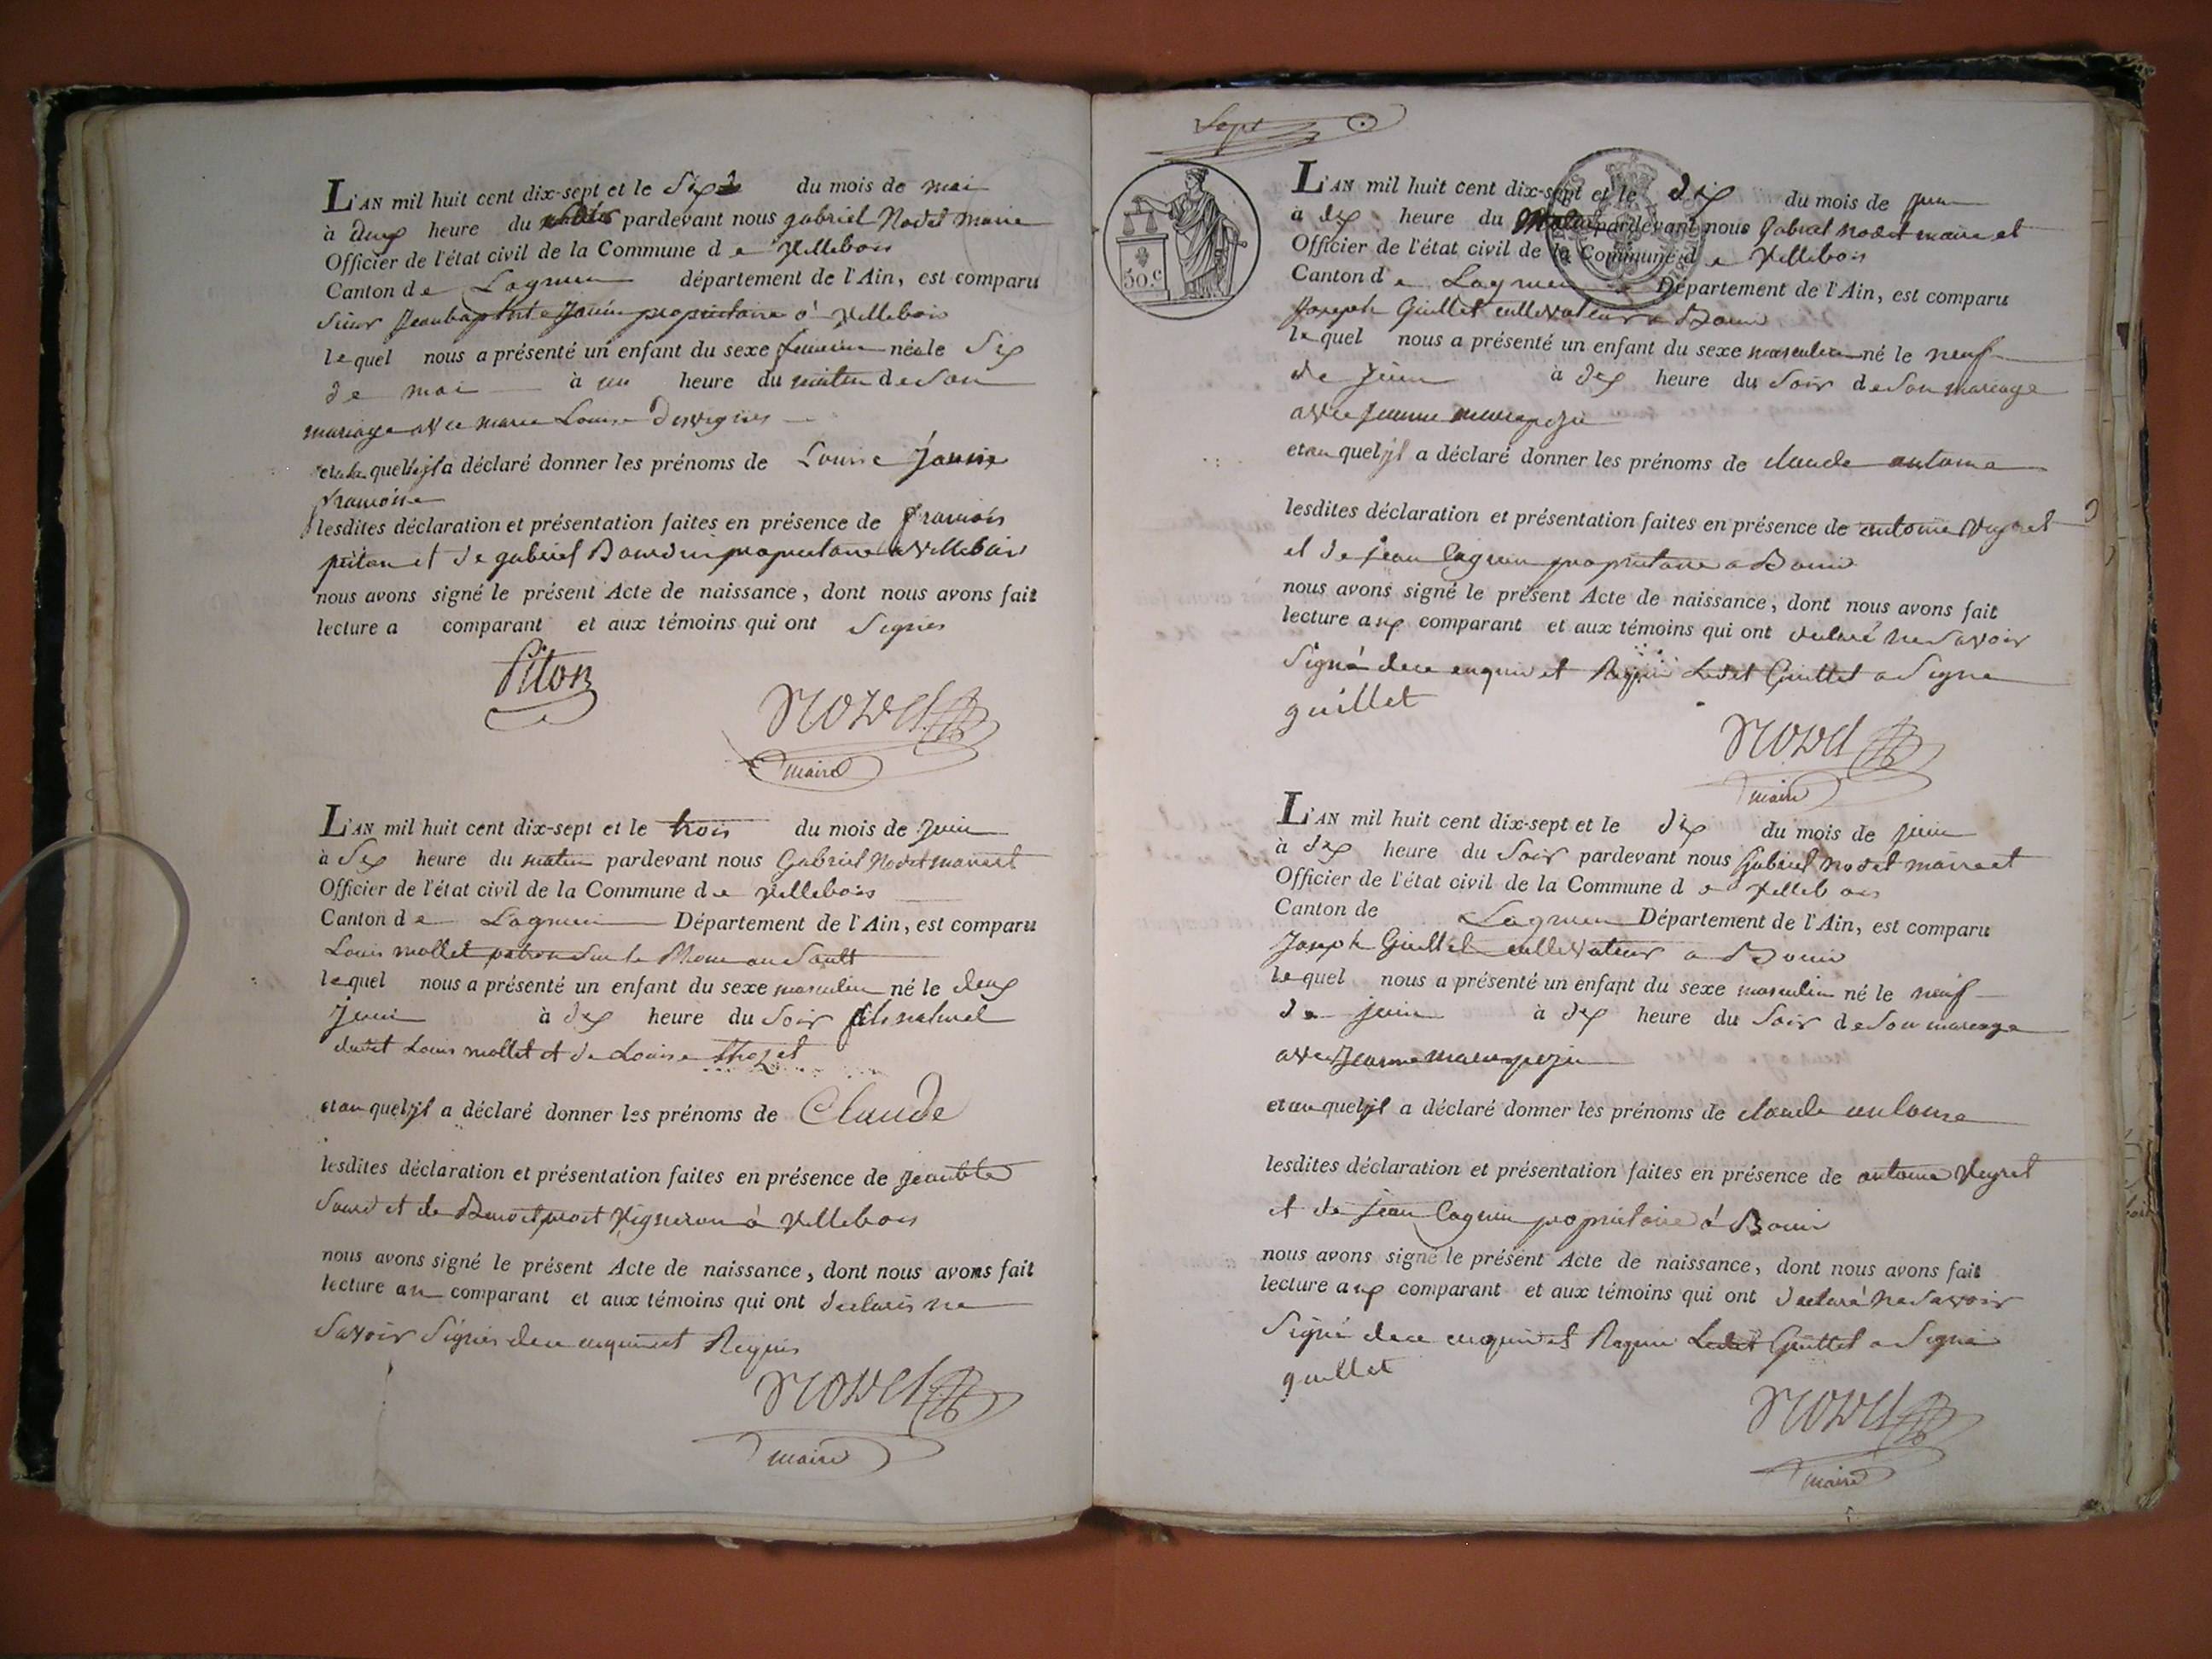 L'AN mil huit cent dix-sept et le Six du mois de mai
à deux heure du pardevant nous gabriel Nodet Maire
Officier de l'état civil de la Commune de Villebois
Canton de Lagnieu département de l'Ain, est comparu
Sieur Jeanbaptiste Janin propriétaire à Villebois
lequel nous a présenté un enfant du sexe feminin née le Six
de mai à un heure du matin de Son
mariage avec marie Louise Desvignes
quel il a déclaré donner les prénoms de Louise
francoise
lesdites déclaration et présentation faites en présence de francois
piton et de gabriel Bourdin proprietaire a Villebois
nous avons signé le présent Acte de naissance, dont nous avons fait
lecture a comparant et aux témoins qui ont Signés
Piton
Nodet
maire
L'AN mil huit cent dix-sept et le trois du mois de Juin
à Six heure du matin pardevant nous Gabriel Nodet maire et
Officier de l'état civil de la Commune de Villebois
Canton de Lagnieu Département de l'Ain, est comparu
Louis mollet patron Sur le Rhone au Sault
lequel nous a présenté un enfant du sexe masculin né le deux
Juin à dix heure du Soir fils naturel
dudit Louis mollet et de Louise thozet
et au quel il a déclaré donner les prénoms de Claude
lesdites déclaration et présentation faites en présence de Jean bte
Sourd et de Benoit Vigneron à Villebois
nous avons signé le présent Acte de naissance, dont nous avons fait
lecture au comparant et aux témoins qui ont declarés ne
Savoir Signés de ce enquis et Requis
Nodet
maire
Sept
50.c
L'AN mil huit cent dix-sept et le dix du mois de Juin
à dix heure du pardevant nous Gabriel nodet maire et
Officier de l'état civil de la Commune de Villebois
Canton de Lagnieu Département de l'Ain, est comparu
Joseph Guillet cultivateur a Bouis
lequel nous a présenté un enfant du sexe masculin né le neuf
de Juin à dix heure du Soir de Son mariage
avec Jeanne
et au quel il a déclaré donner les prénoms de claude antoine
lesdites déclaration et présentation faites en présence de antoine Veyret
et de jean Cagnin propriétaire a Bouis
nous avons signé le présent Acte de naissance, dont nous avons fait
lecture aux comparant et aux témoins qui ont declaré ne Savoir
Signé de ce enquis et Requis Ledit Guillet a Signé
guillet
Nodet
maire
L'AN mil huit cent dix-sept et le dix du mois de juin
à dix heure du Soir pardevant nous Gabriel nodet maire et
Officier de l'état civil de la Commune de Villebois
Canton de Lagnieu Département de l'Ain, est comparu
Joseph Guillet cultivateur a Bouis
lequel nous a présenté un enfant du sexe masculin né le neuf
de juin à dix heure du Soir de Son mariage
avec Jeanne
et au quel il a déclaré donner les prénoms de claude antoine
lesdites déclaration et présentation faites en présence de antoine Veyret
et de jean Cagnin propriétaire à Bouis
nous avons signé le présent Acte de naissance, dont nous avons fait
lecture aux comparant et aux témoins qui ont declaré ne Savoir
Signé de ce enquis et Requis Ledit Guillet a Signé
guillet
Nodet
maire